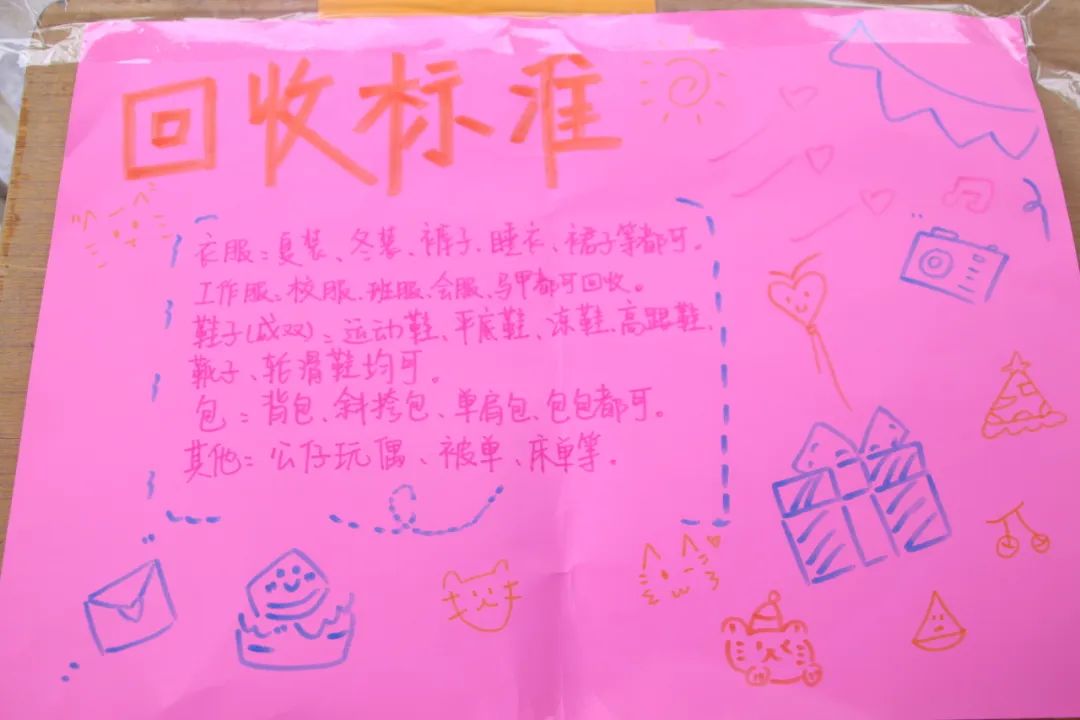 回收标准
衣服：夏装、冬装、裤子、睡衣、裙子等都可。
工作服：校服、班服、会服、马甲都可回收。
鞋子(成双)：运动鞋、平底鞋、凉鞋、高跟鞋、
靴子、轮滑鞋均可。
包：背包、斜挎包、单肩包、包包都可。
其他：公仔玩偶、被单、床单等。